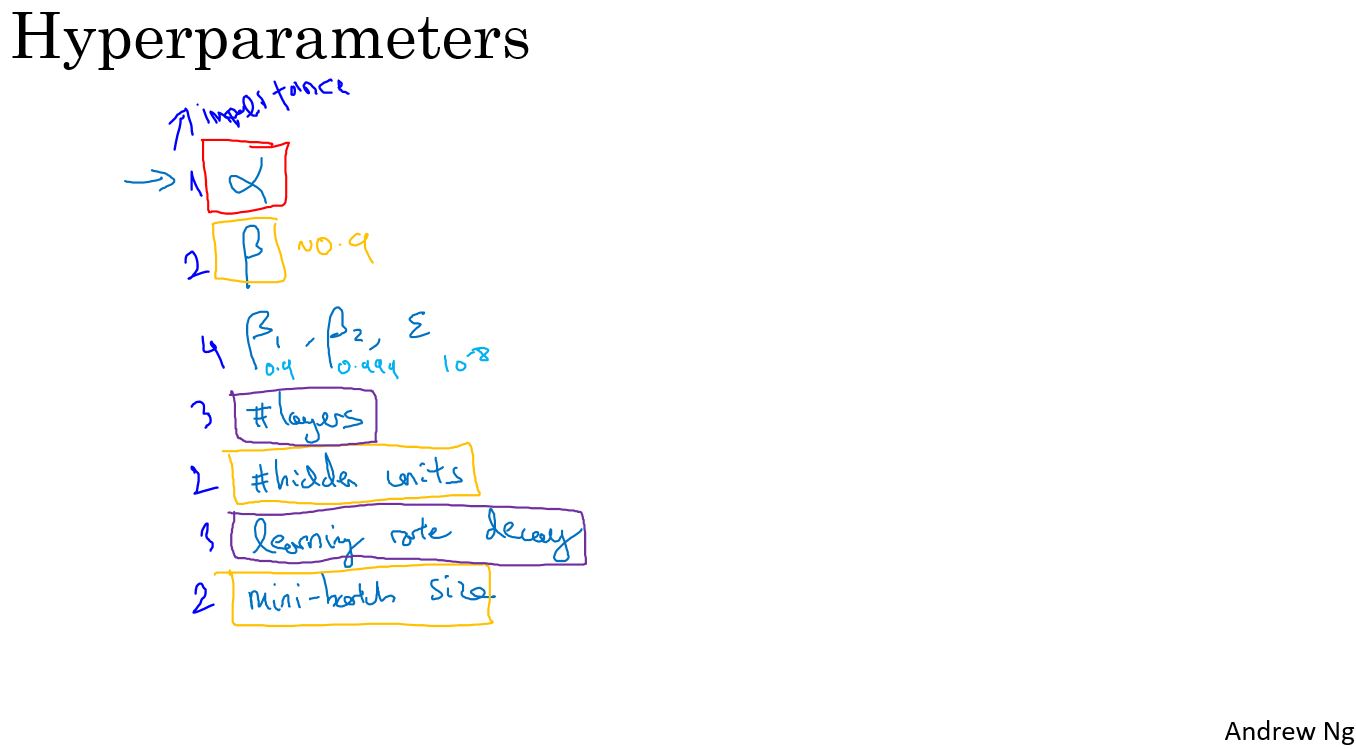 Hyperparameters
↑ importance
→ 1 α
2 β ~0.9
4 β₁, β₂, ε
0.9 0.999 10⁻⁸
3 #layers
2 #hidden units
3 learning rate decay
2 mini-batch size
Andrew Ng